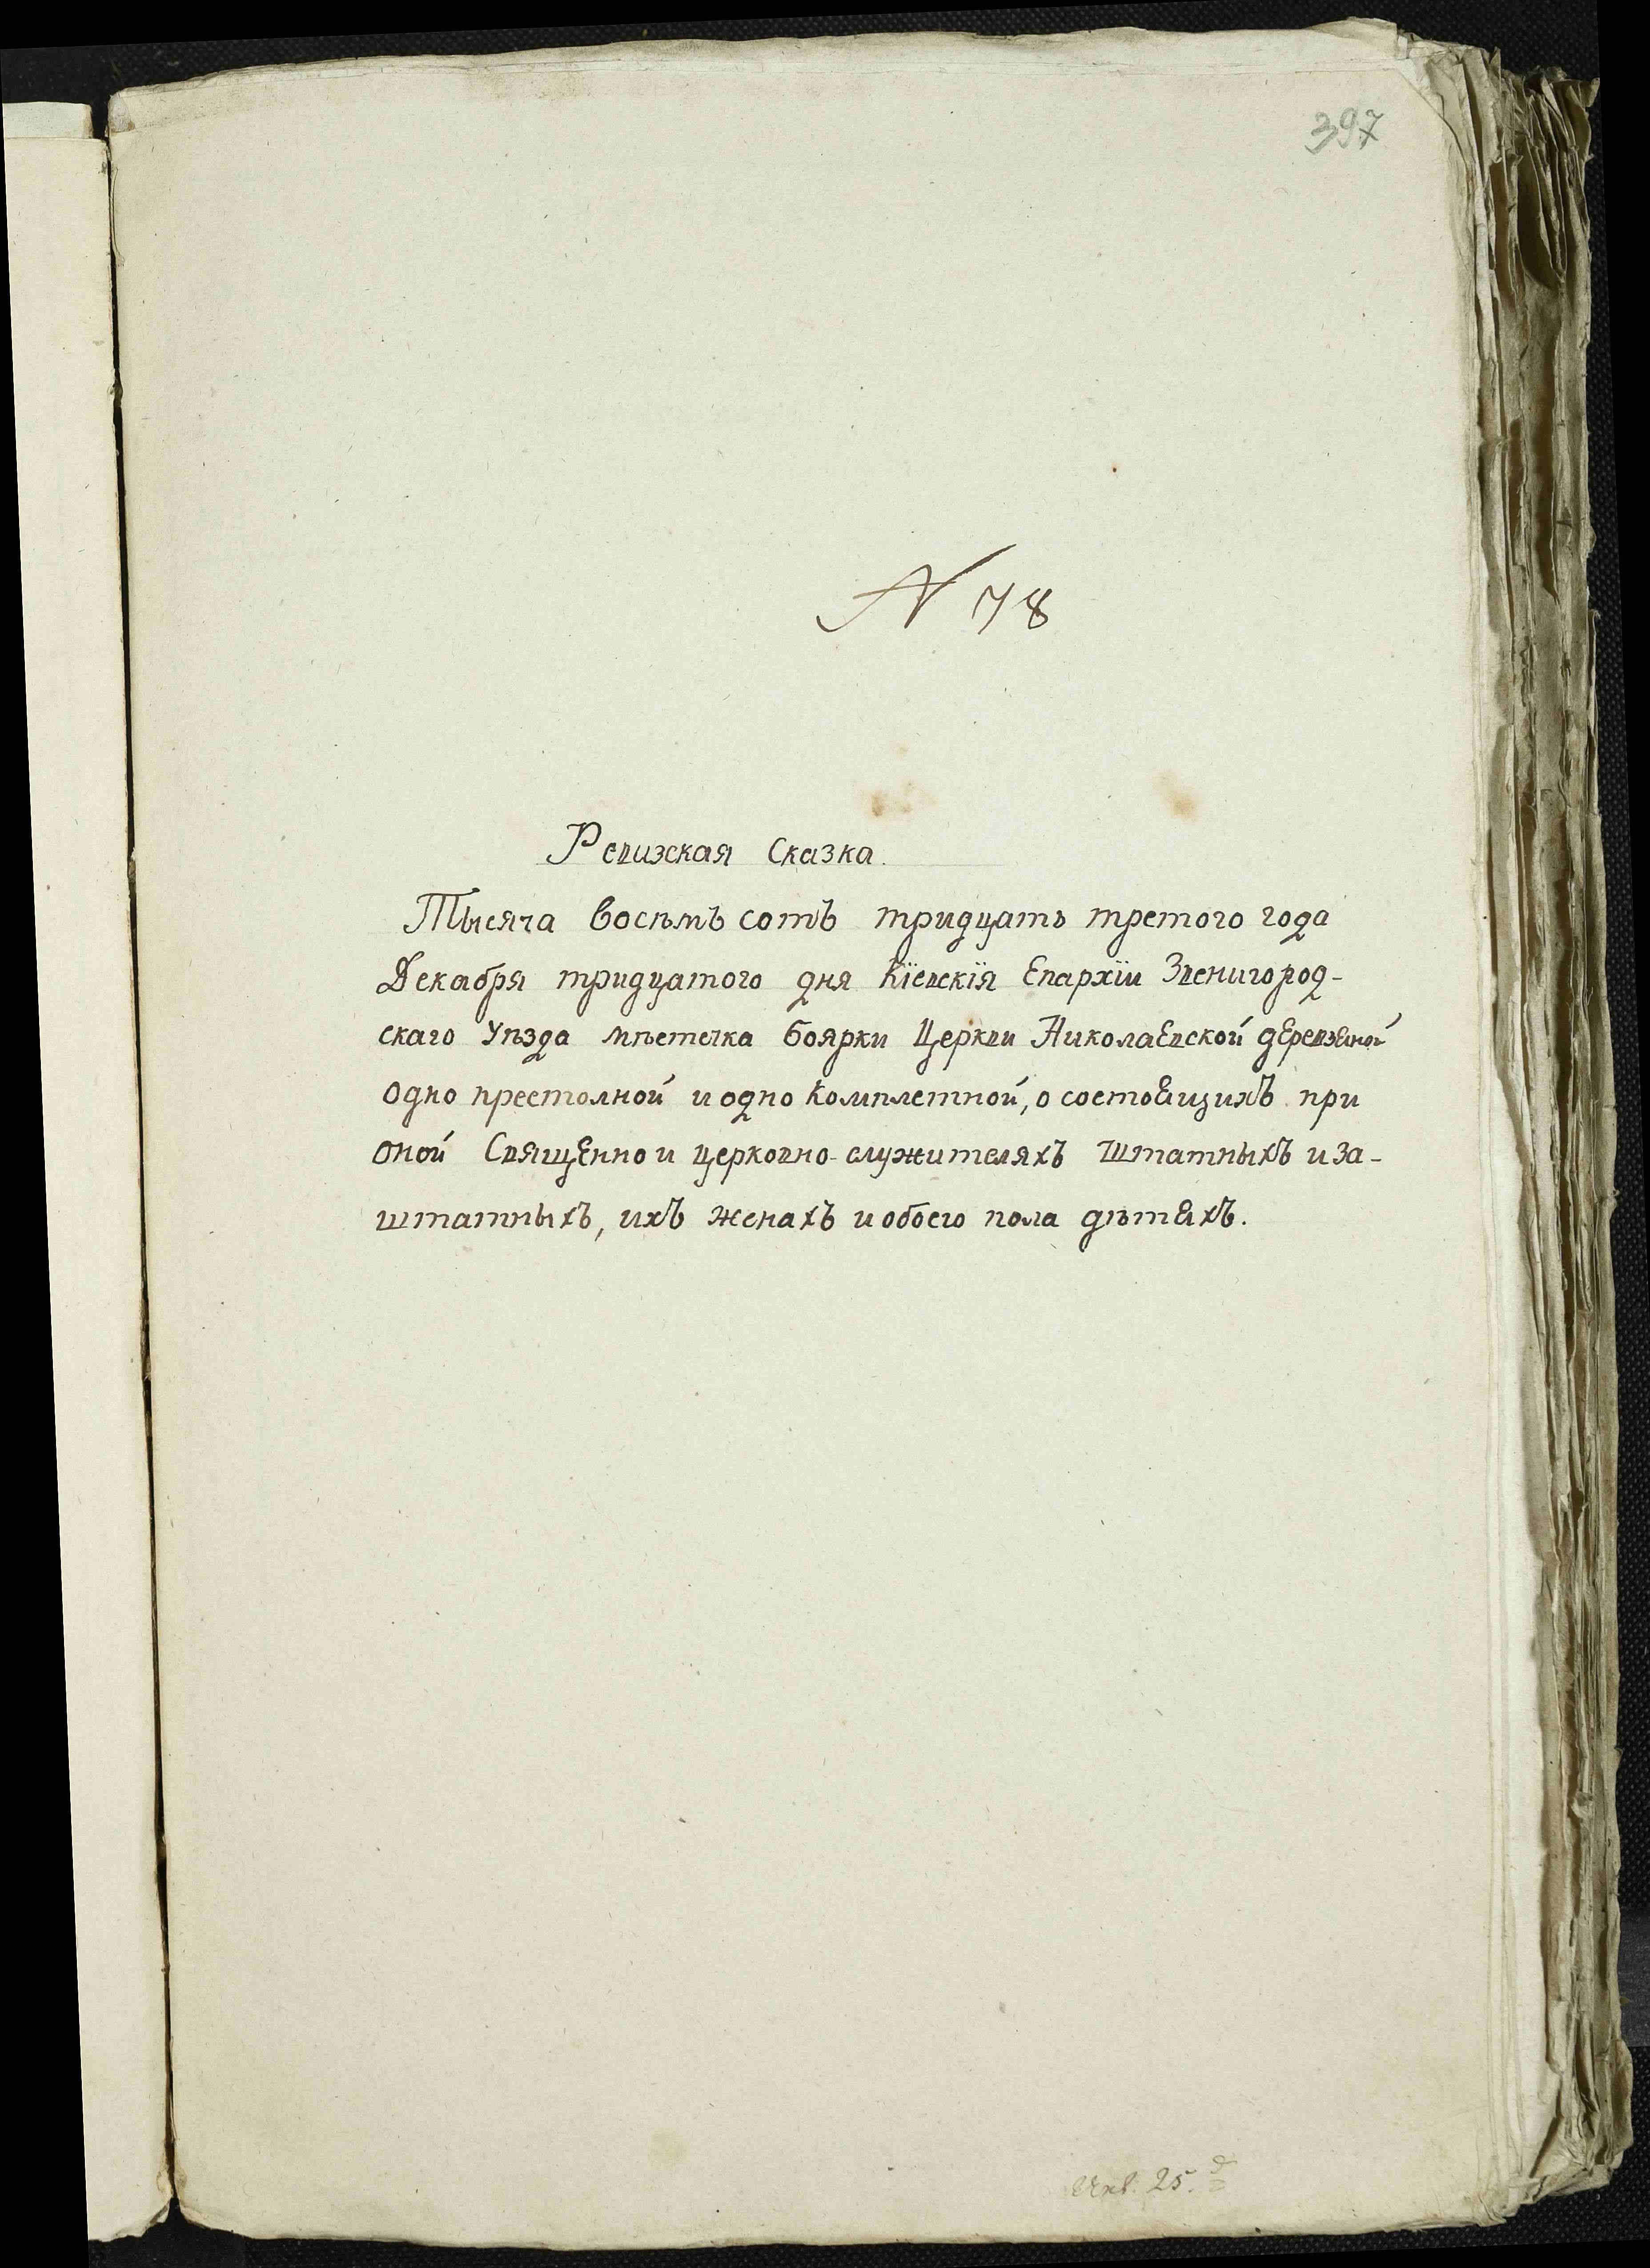 397
N 78
Ревизская Сказка.
Тысяча восѣмъ сотъ тридцать третого года
Декабря тридцатого дня Кіевскія Епархіи Звенигород-
скаго Уѣзда мѣстечка Боярки Церкви Николаевской деревяной
одно престолной и одно комплетной, о состоящихъ при
оной Священно и церковно-служителяхъ штатныхъ и за-
штатныхъ, ихъ женахъ и обоего пола дѣтяхъ.
25.